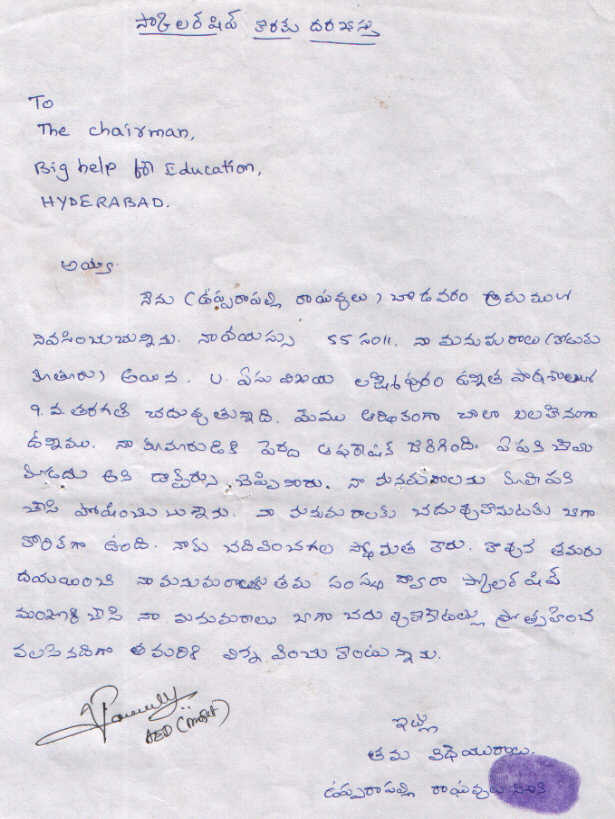 స్కాలర్ షిప్ కొరకు దరఖాస్తు
To
The chairman,
Big help for Education,
HYDERABAD.
అయ్యా
నేను (ఉప్పరాపల్లి రాఘవులు) గ్రామములో
నివసించుచున్నాను. నా వయస్సు 55 సం॥. నా మనుమరాలు (కొడుకు
కూతురు) అయిన. U. ఏసు విజయ లక్ష్మీపురం ఉన్నత పాఠశాలలో
9. వ తరగతి చదువుతున్నది. మేము ఆర్థికంగా చాలా బలహీనంగా
ఉన్నాము. నా కుమారుడికి పెద్ద ఆపరేషన్ జరిగింది. ఏ పని చేయ
కూడదు అని డాక్టర్సు చెప్పినారు. నా మనుమరాలను కూలి పని
చేసి పోషించుచున్నాను. నా మనుమరాలకు చదువుకొనుటకు బాగా
కోరికగా ఉంది. నాకు చదివించగల స్తోమత లేదు. కావున తమరు
దయయుంచి నా మనుమరాలుకు తమ సంస్థ ద్వారా స్కాలర్ షిప్
మంజూరి చేసి నా మనుమరాలు బాగా చదువుకొనేటట్లు ప్రోత్సహించ
వలసినదిగా తమరికి విన్నవించుకొంటున్నాను.
ఇట్లు
తమ విధేయురాలు.
ఉప్పరాపల్లి రాఘవులు